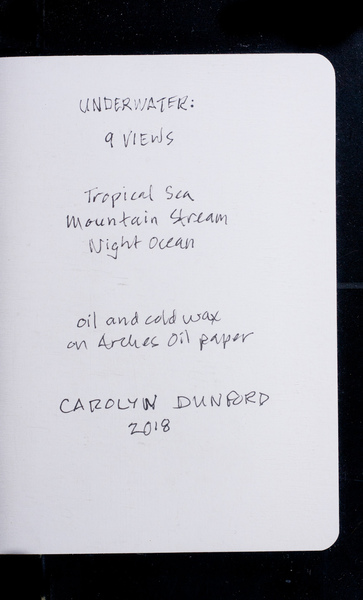 UNDERWATER:
9 VIEWS
Tropical Sea
Mountain Stream
Night Ocean
oil and cold wax
on Arches Oil paper
CAROLYN DUNFORD
2018